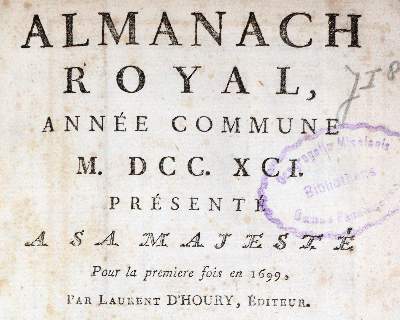 ALMANACH
ROYAL,
ANNÉE COMMUNE
M. DCC. XCI.
PRÉSENTÉ
A SA MAJESTÉ
Pour la premiere fois en 1699,
PAR LAURENT D'HOURY, ÉDITEUR.